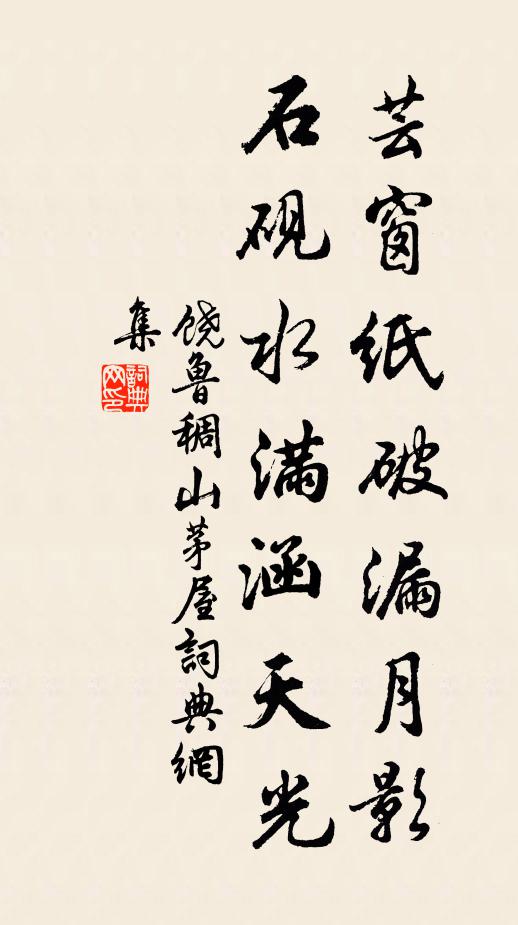 芸窗纸破漏月影
石砚水满涵天光
饶鲁稠山茅屋詞典網
集
詞典网印